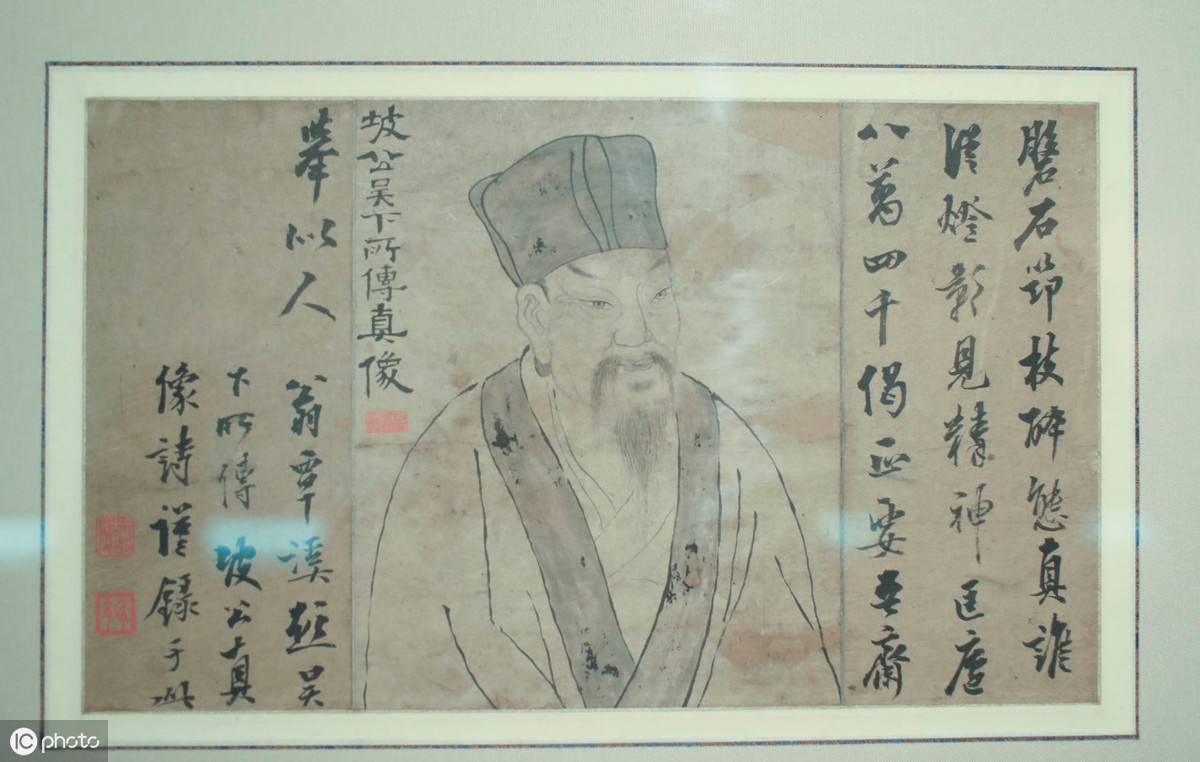 磐石筇枝醉態真誰
從燈影見精神匡廬
八萬四千偈正要吾齋
坡公吴下所傳真像
舉似人 翁覃溪題吳
下所傳坡公真
像詩謹錄于此
IC photo